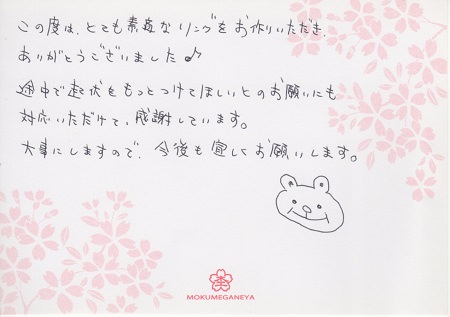 この度は、とても素敵なリングをお作りいただき、
ありがとうございました♪
途中で起伏をもっとつけてほしいとのお願いにも
対応いただけて、感謝しています。
大事にしますので、今後も宜しくお願いします。
MOKUMEGANEYA